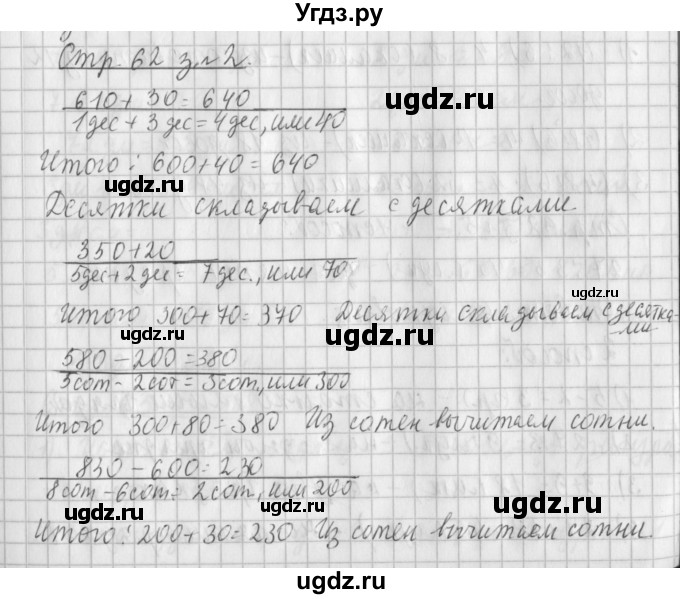 Угдз.ру
Стр. 62 з.№2.
610 + 30 = 640
1дес + 3 дес = 4дес, или 40
Итого: 600+40 = 640
Десятки складываем с десятками.
350+20
5дес+2дес = 7дес., или 70
Итого 300+70=370 Десятки складываем с десятка-
ми
580 - 200 = 380
5сот - 2сот = 3сот, или 300
Итого 300+80=380 Из сотен вычитаем сотни.
830 - 600 = 230
8сот - 6сот = 2сот, или 200
Итого: 200+30=230 Из сотен вычитаем сотни.
ugdz.ru
ugdz.ru
ugdz.ru
ugdz.ru
ugdz.ru
ugdz.ru
ugdz.ru
ugdz.ru
ugdz.ru
ugdz.ru
ugdz.ru